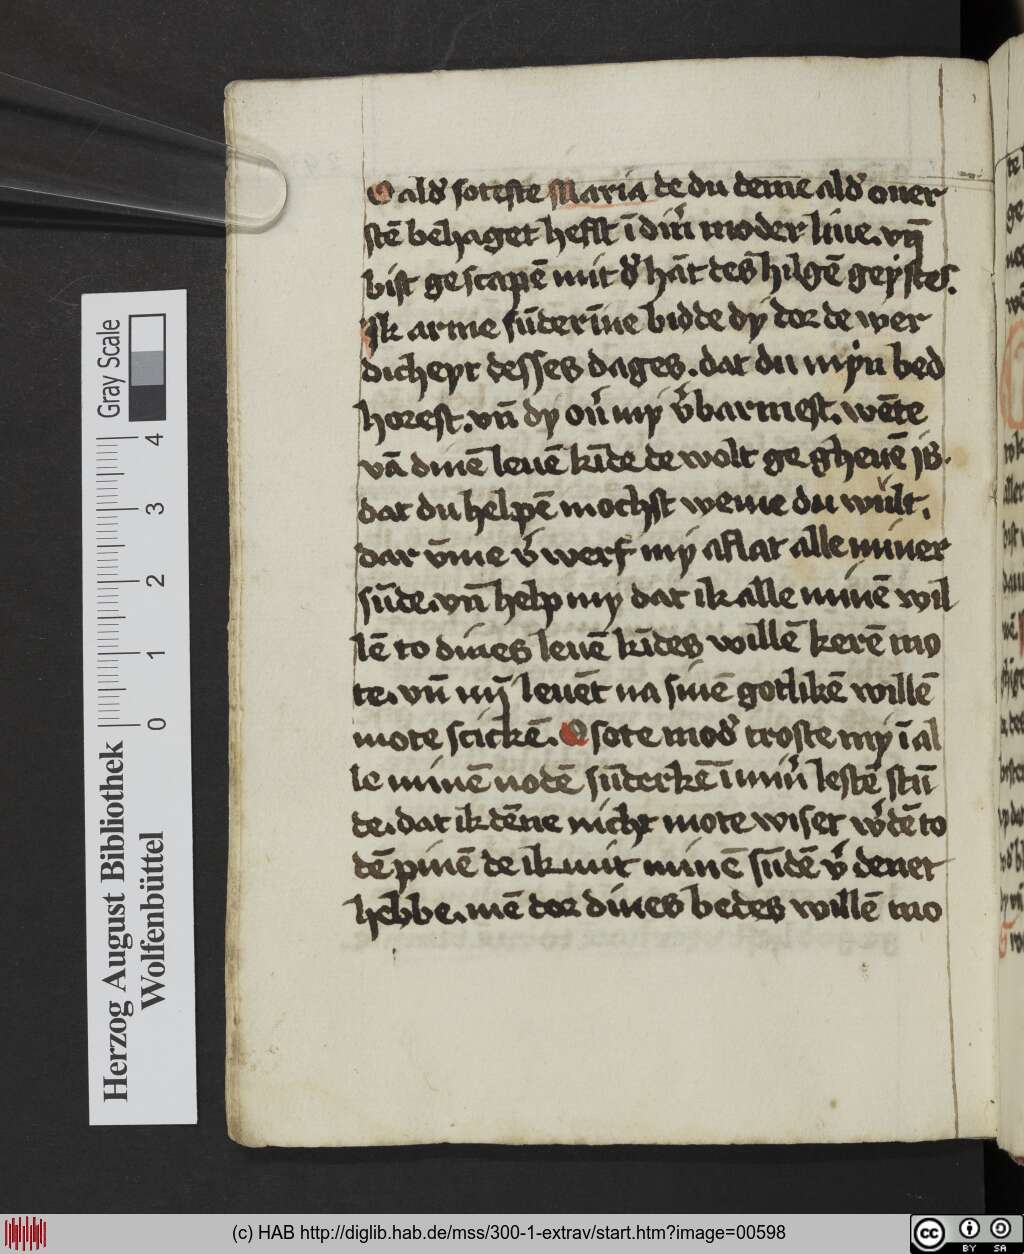 O ald᷈ soteste Maria de du deme ald᷈ ouer
stē behaget hefst ī din̄ moder liue. vn̄
bist gescapē mit d᷈ hāt des hilgē geystes.
Ik arme sūderīne bidde dy dor de wer
dicheyt desses dages. dat du myn bed
horest. vn̄ dy ou᷈ my v᷈barmest. wēte
vā dinē leuē kīde de wolt ge gheuē js.
dat du helpē mochst weme du wult.
dar v̄me v᷈werf my aflat alle miner
sūde. vn̄ help my dat ik alle minē wil
lē to dines leuē kīdes willē kerē mo
te. vn̄ mȳ leuēt na sinē gotlikē willē
mote scickē. O sote mod᷈ troste my ī al
le minē nodē sūderkē ī min᷈ lestē stū
de. dat ik dēne nicht mote wiset w᷈dē to
dē pinē de ik mit minē sūdē v᷈denet
hebbe. mē dor dines bedes willē mo
Gray Scale
0 1 2 3 4
Herzog August Bibliothek
Wolfenbüttel
(c) HAB http://diglib.hab.de/mss/300-1-extrav/start.htm?image=00598
cc BY SA